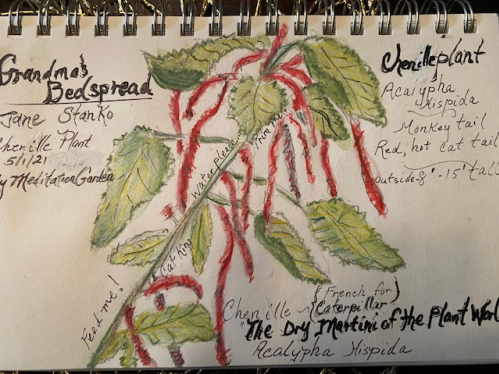 Grandma's
Bedspread
Jane Stanko
Chenille Plant
5/1/21
My Meditation Garden
Chenille plant
Acalypha
Hispida
Monkey tail
Red, hot cat tail
Outside-8'-15' tall
Water please
Trim me
Catkins
Feed me!
Chenille - (French for)
Caterpillar
"The Dry Martini of the Plant Worl
Acalypha Hispida